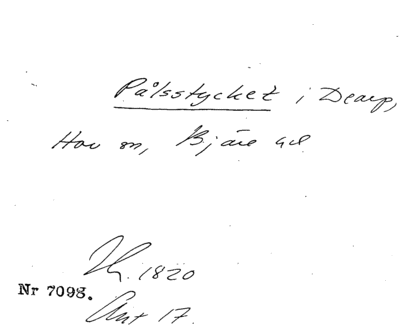 Pålsstycket i Dearp,
Hov sn, Bjäre hd
Lh. 1820
Nr 7098.
Ant 17.